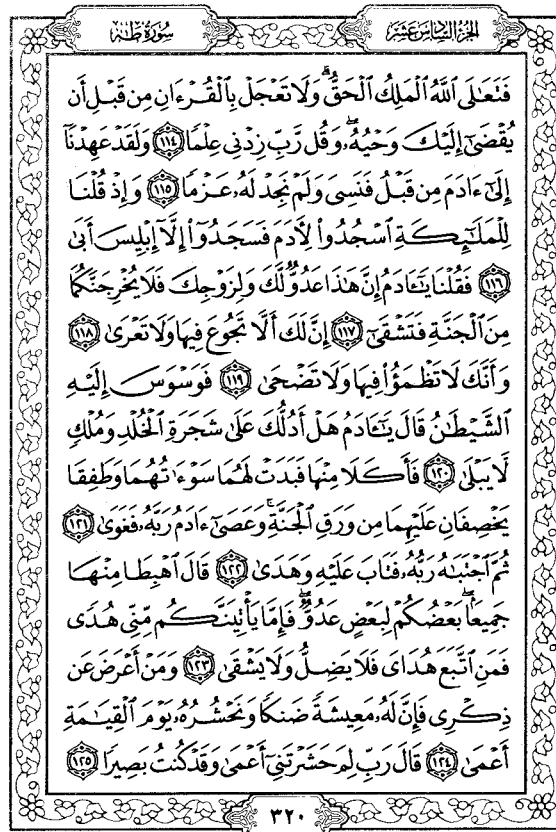 سُورَةُ طه الجُزْءُ السَّادِسَ عَشَرَ
فَتَعَـٰلَى ٱللَّهُ ٱلْمَلِكُ ٱلْحَقُّ ۗ وَلَا تَعْجَلْ بِٱلْقُرْءَانِ مِن قَبْلِ أَن
يُقْضَىٰٓ إِلَيْكَ وَحْيُهُۥ ۖ وَقُل رَّبِّ زِدْنِى عِلْمًا ﴿١١٤﴾ وَلَقَدْ عَهِدْنَآ
إِلَىٰٓ ءَادَمَ مِن قَبْلُ فَنَسِىَ وَلَمْ نَجِدْ لَهُۥ عَزْمًا ﴿١١٥﴾ وَإِذْ قُلْنَا
لِلْمَلَـٰٓئِكَةِ ٱسْجُدُوا۟ لِـَٔادَمَ فَسَجَدُوٓا۟ إِلَّآ إِبْلِيسَ أَبَىٰ
﴿١١٦﴾ فَقُلْنَا يَـٰٓـَٔادَمُ إِنَّ هَـٰذَا عَدُوٌّ لَّكَ وَلِزَوْجِكَ فَلَا يُخْرِجَنَّكُمَا
مِنَ ٱلْجَنَّةِ فَتَشْقَىٰٓ ﴿١١٧﴾ إِنَّ لَكَ أَلَّا تَجُوعَ فِيهَا وَلَا تَعْرَىٰ ﴿١١٨﴾
وَأَنَّكَ لَا تَظْمَؤُا۟ فِيهَا وَلَا تَضْحَىٰ ﴿١١٩﴾ فَوَسْوَسَ إِلَيْهِ
ٱلشَّيْطَـٰنُ قَالَ يَـٰٓـَٔادَمُ هَلْ أَدُلُّكَ عَلَىٰ شَجَرَةِ ٱلْخُلْدِ وَمُلْكٍ
لَّا يَبْلَىٰ ﴿١٢٠﴾ فَأَكَلَا مِنْهَا فَبَدَتْ لَهُمَا سَوْءَٰتُهُمَا وَطَفِقَا
يَخْصِفَانِ عَلَيْهِمَا مِن وَرَقِ ٱلْجَنَّةِ ۚ وَعَصَىٰٓ ءَادَمُ رَبَّهُۥ فَغَوَىٰ ﴿١٢١﴾
ثُمَّ ٱجْتَبَـٰهُ رَبُّهُۥ فَتَابَ عَلَيْهِ وَهَدَىٰ ﴿١٢٢﴾ قَالَ ٱهْبِطَا مِنْهَا
جَمِيعًۢا ۖ بَعْضُكُمْ لِبَعْضٍ عَدُوٌّ ۖ فَإِمَّا يَأْتِيَنَّكُم مِّنِّى هُدًى
فَمَنِ ٱتَّبَعَ هُدَاىَ فَلَا يَضِلُّ وَلَا يَشْقَىٰ ﴿١٢٣﴾ وَمَنْ أَعْرَضَ عَن
ذِكْرِى فَإِنَّ لَهُۥ مَعِيشَةً ضَنكًا وَنَحْشُرُهُۥ يَوْمَ ٱلْقِيَـٰمَةِ
أَعْمَىٰ ﴿١٢٤﴾ قَالَ رَبِّ لِمَ حَشَرْتَنِىٓ أَعْمَىٰ وَقَدْ كُنتُ بَصِيرًا ﴿١٢٥﴾
٣٢٠